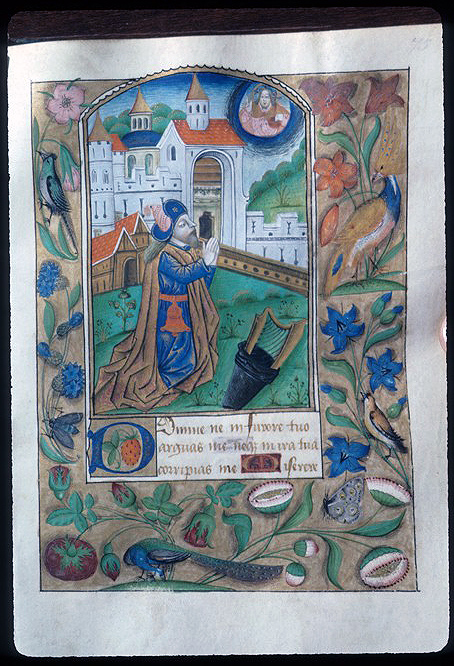 Domine ne in furore tuo
arguas me neqz in ira tua
corripias me Miserere